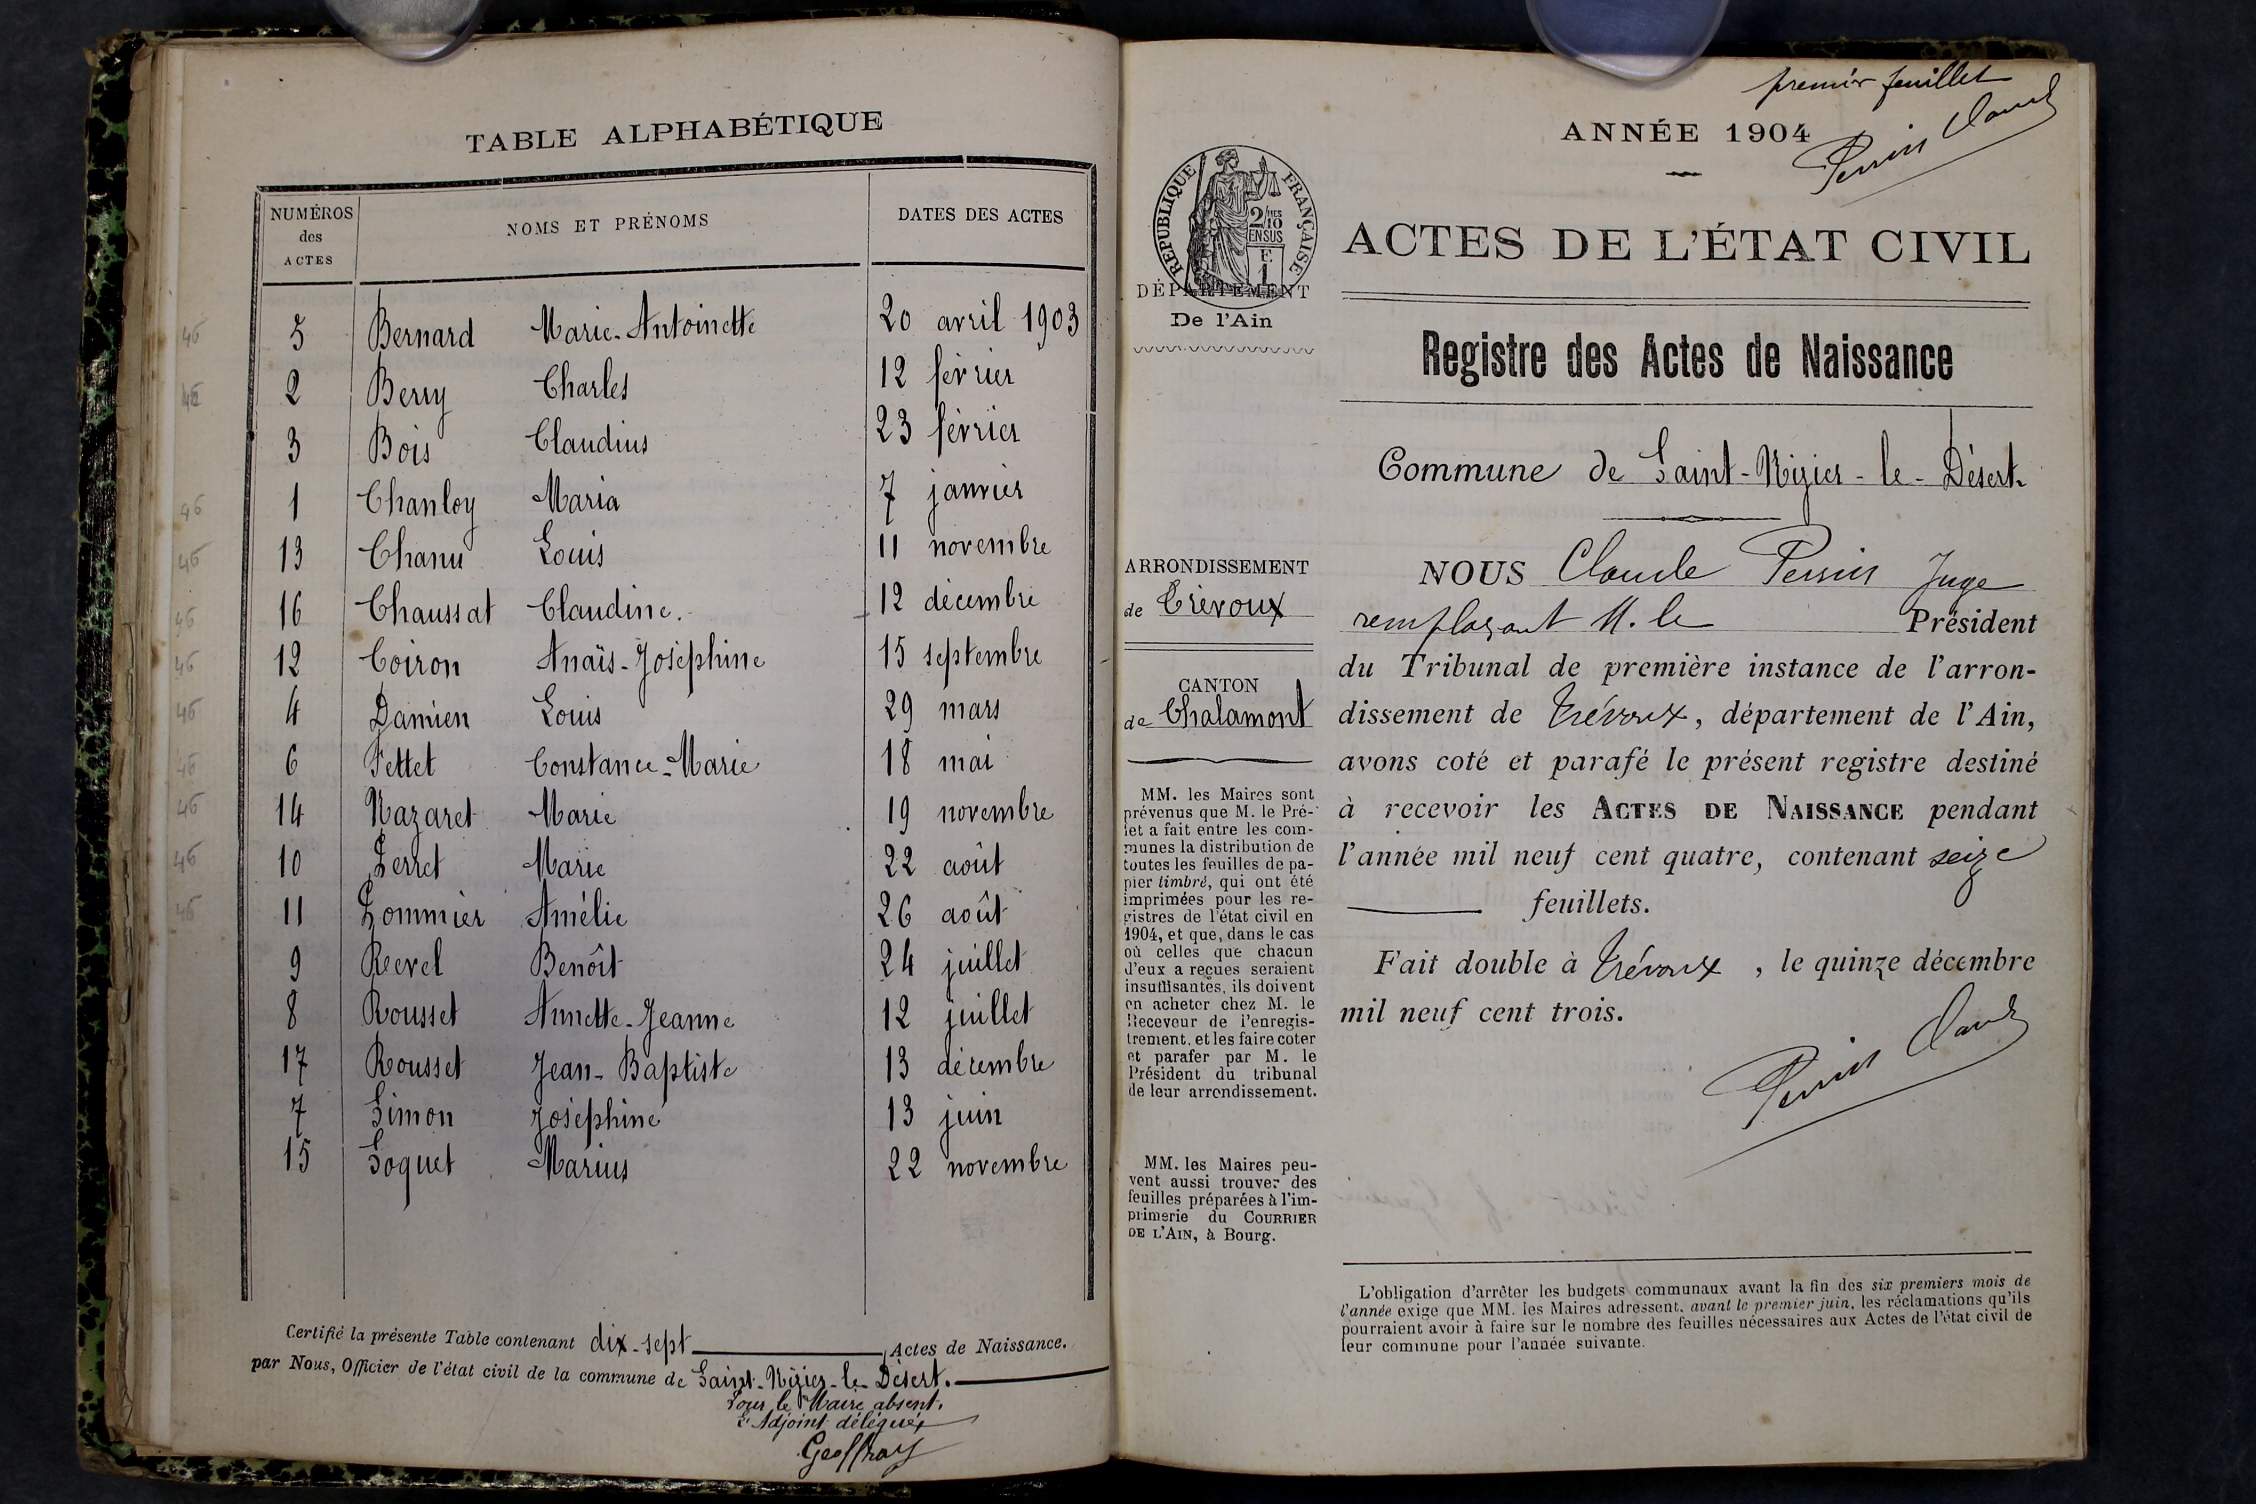 TABLE ALPHABÉTIQUE
NUMÉROS des ACTES NOMS ET PRÉNOMS DATES DES ACTES
5 Bernard Marie-Antoinette 20 avril 1903
2 Berry Charles 12 février
3 Bois Claudius 23 février
1 Chanloy Maria 7 janvier
13 Chanu Louis 11 novembre
16 Chaussat Claudine. 12 décembre
12 Coiron Anaïs-Joséphine 15 septembre
4 Damien Louis 29 mars
6 Fettet Constance-Marie 18 mai
14 Nazaret Marie 19 novembre
10 Perret Marie 22 août
11 Pommier Amélie 26 août
9 Revel Benoît 24 juillet
8 Rousset Annette-Jeanne 12 juillet
17 Rousset Jean-Baptiste 13 décembre
7 Simon Joséphine 13 juin
15 Soquet Marius 22 novembre
Certifié la présente Table contenant dix-sept Actes de Naissance.
par Nous, Officier de l'état civil de la commune de Saint-Nizier-le-Désert.
Pour le Maire absent,
L'Adjoint délégué,
Geoffray
premier feuillet
Perrier Claude
ANNÉE 1904
RÉPUBLIQUE FRANÇAISE
2/10mes
EN SUS
F.
1
ACTES DE L'ÉTAT CIVIL
DÉPARTEMENT
De l'Ain
Registre des Actes de Naissance
Commune de Saint-Nizier-le-Désert.
ARRONDISSEMENT
de Trévoux
CANTON
de Chalamont
MM. les Maires sont
prévenus que M. le Pré-
fet a fait entre les com-
munes la distribution de
toutes les feuilles de pa-
pier timbré, qui ont été
imprimées pour les re-
gistres de l'état civil en
1904, et que, dans le cas
où celles que chacun
d'eux a reçues seraient
insuffisantes, ils doivent
en acheter chez M. le
Receveur de l'enregis-
trement, et les faire coter
et parafer par M. le
Président du tribunal
de leur arrondissement.
MM. les Maires peu-
vent aussi trouver des
feuilles préparées à l'im-
primerie du COURRIER
DE L'AIN, à Bourg.
NOUS Claude Perrier Juge
remplaçant M. le Président
du Tribunal de première instance de l'arron-
dissement de Trévoux, département de l'Ain,
avons coté et parafé le présent registre destiné
à recevoir les ACTES DE NAISSANCE pendant
l'année mil neuf cent quatre, contenant seize
feuillets.
Fait double à Trévoux, le quinze décembre
mil neuf cent trois.
Perrier Claude
L'obligation d'arrêter les budgets communaux avant la fin des six premiers mois de
l'année exige que MM. les Maires adressent, avant le premier juin, les réclamations qu'ils
pourraient avoir à faire sur le nombre des feuilles nécessaires aux Actes de l'état civil de
leur commune pour l'année suivante.